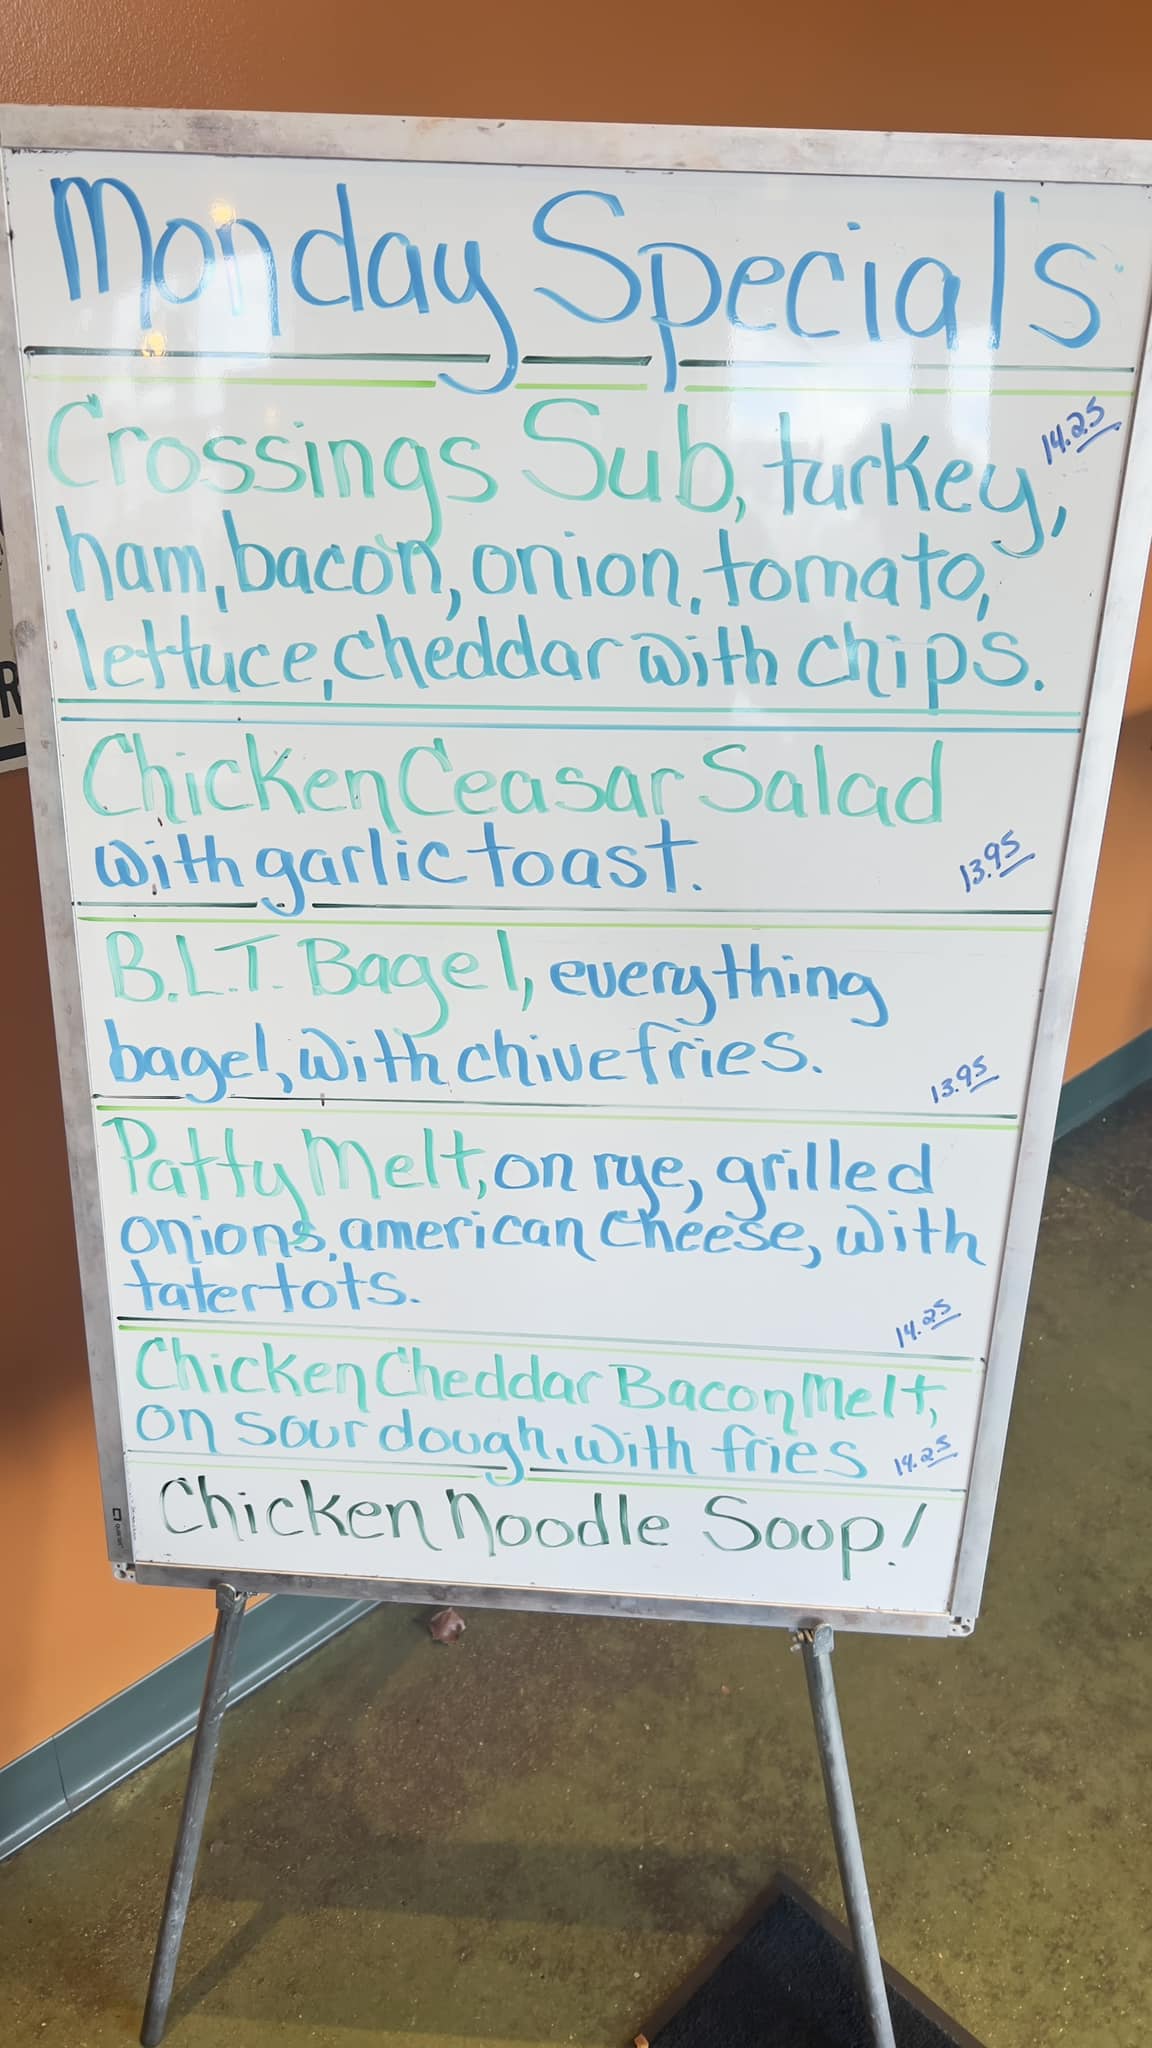 Monday Specials
Crossings Sub, turkey, 14.25
ham, bacon, onion, tomato,
lettuce, cheddar with chips.
Chicken Ceasar Salad
with garlic toast. 13.95
B.L.T. Bagel, everything
bagel, with chive fries. 13.95
Patty Melt, on rye, grilled
onions, american cheese, with
tatertots. 14.25
Chicken Cheddar Bacon Melt,
on sour dough, with fries 14.25
Chicken Noodle Soup!
R